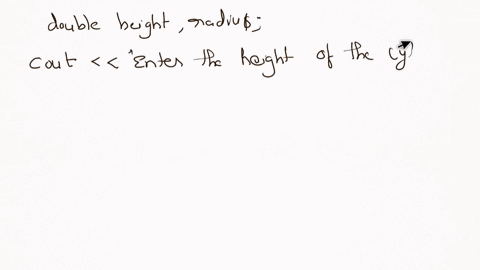 double height, radius;
cout << "Enter the height of the Cy